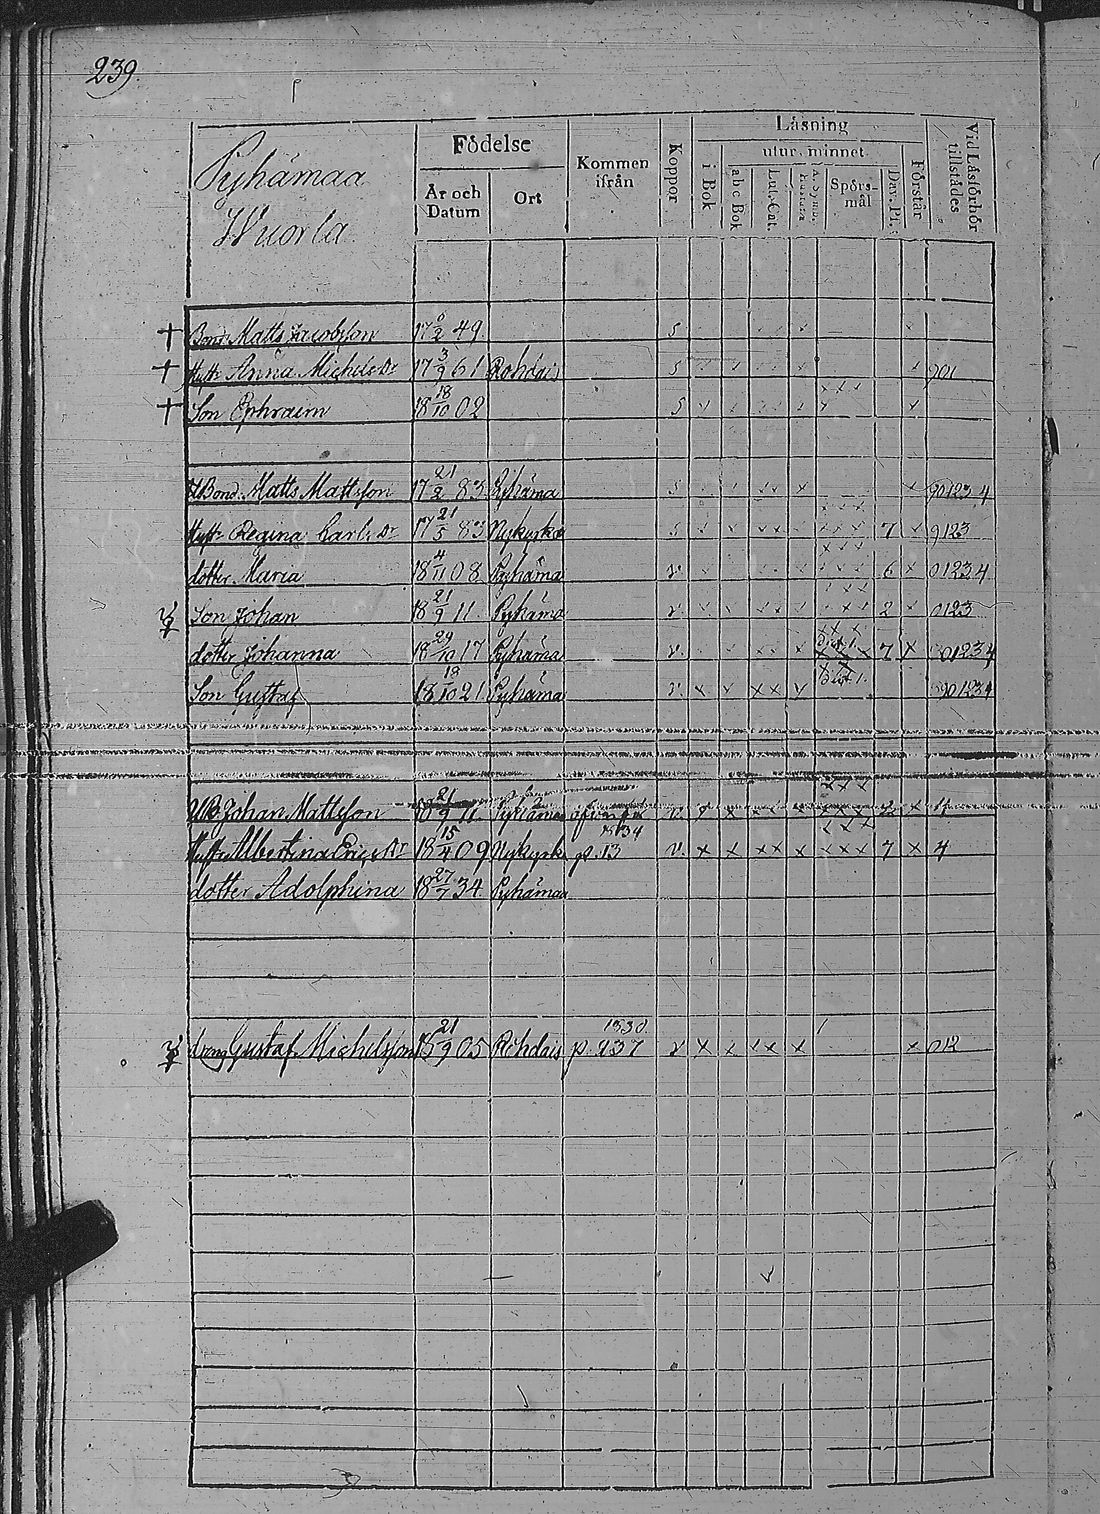 239.
Pyhämaa
Wuorla
Födelse
År och Datum
Ort
Kommen ifrån
Koppor
Läsning
utur minnet
i Bok
abc Bok
Lut. Cat.
Spörs-mål
Dav. Ps.
Förstår
Vid Läsförhör tillstädes
† Bond. Matts Jacobsson 17 49 S
† Hustr. Anna Michels Dr 17 3/9 61 Rohdais S 901
† Son Ephraim 18 18/10 02 S
Bond. Matts Mattsson 17 21/2 83 Pyhäma S 901234
Hustr. Regina Carls Dr 17 21/5 83 Nykyrko S 7 9123
dotter Maria 18 4/11 08 Pyhäma v. 6 01234
Son Johan 18 21/9 11. Pyhäma v. 2 0123
dotter Johanna 18 29/10 17 Pyhäma v. 7 01234
Son Gustaf 18 18/10 21 Pyhäma v. 901234
Johan Mattsson 18 21/9 11. Pyhämaa v. 2 4
Hustr. Albertina Erics Dr 18 15/4 09 Nykyrk. 1834 p. 13 v. 7 4
dotter Adolphina 18 27/7 34 Pyhämaa
dreng Gustaf Michelsson 18 21/9 05 Rohdais 1830. p. 237 v 012